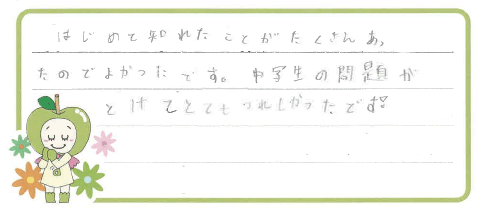 はじめて知れたことがたくさんあっ
たのでよかったです。中学生の問題が
とけてとてもうれしかったです。